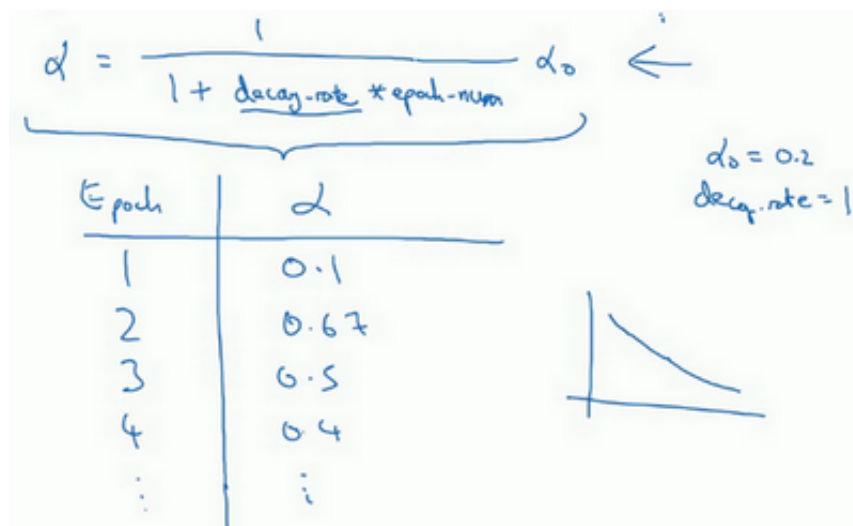 α = 1 / (1 + decay-rate * epoch-num) α₀ ←
α₀ = 0.2
decay-rate = 1
Epoch | α
1 | 0.1
2 | 0.67
3 | 0.5
4 | 0.4
⋮ | ⋮